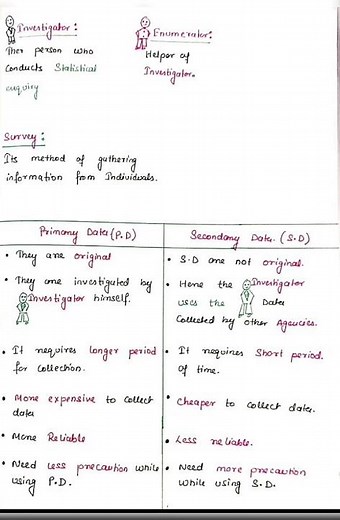 Investigator:
Ther person who
Conducts Statistical
enquiry
Enumerator:
Helpor of
Investigator.
Survey:
Its method of guthering
information from Individuals.
Primary Data (P.D)
• They are original
• They are investiguted by
Investigator himself.
• It requires longer period
for collection.
• More expensive to collect
data
• More Reliable
• Need less precaution while
using P.D.
Secondary Data. (S.D)
• S.D are not original.
• Here the Investigator
uses the Data
Collected by other Agencies.
• It requires Short period.
of time.
• Cheaper to collect data.
• Less reliable.
• Need more precaution
while using S.D.